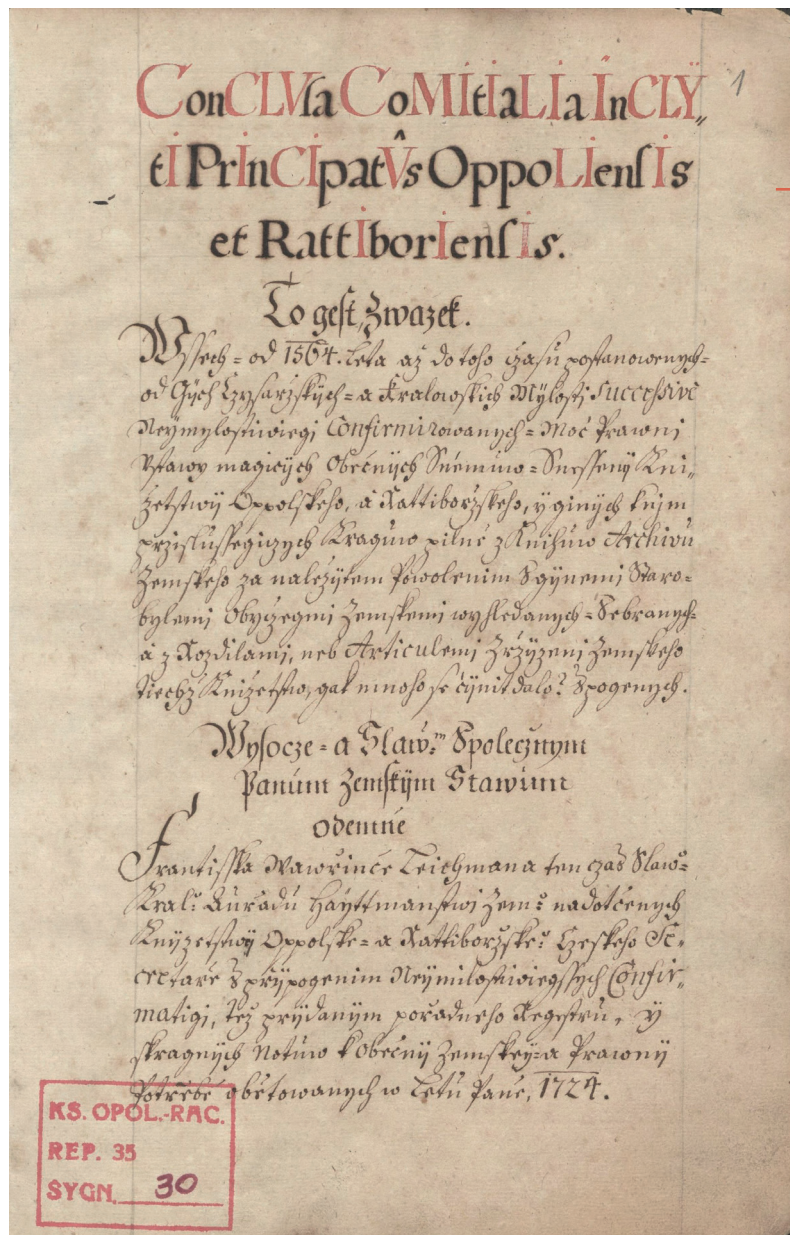 ConCLVsa CoMItIaLIa InCLŸ„
tI PrInCIpatV̂s OppoLIensIs
et RattIborIensIs.
1
To gest, Zwazek.
Wssech = od 1564. Leta až do toho čzasu postanowenych =
od Gých Czysaržských = a Kralowskich Mÿlosti successivè
Neÿmylostiwiegi Confirmirowanych = Moc Prawni
Vstawy magicých Obecnÿch Snémúw = Snessenÿ Kni„
žetstwÿ Oppolskeho, á Rattiboržskeho, y ginÿch kujm
przislussegiczych Kragúw pilné z Knihúw Archivu
Zemskeho za naležÿtem Powolenim Sgÿnemi Staro=
bylemi Obyczegmi Zemskemi wyhledanych = Sebranych =
á z Rozdilami, neb Articulemi Zržÿzeni Zemskeho
Tiechž Knižetstw, gak mnoho se cÿnit dalo: Spogenych.
Wysocze = a Slaw:ᵐ Spolecžnym
Panúm Zemskÿm Stawúm
odemne
Frantisska Wawřince Teichmana ten czas Slaw:
Kral: Auřadu Haÿttmanstwi Zem: nadotčenych
Knÿzetstwÿ Oppolske = a Rattiboržske: Czeskeho Se„
cretaře S přÿpogenim Neÿmilostiwiegssych Confir„
matigi, Též přÿdanÿm pořadneho Regestru, y
skragnÿch Notúw k Obecnÿ Zemskeÿ = a Prawnÿ
Potřebe obětowanych w Letu Pané, 1724.
KS. OPOL.-RAC.
REP. 35
SYGN. 30